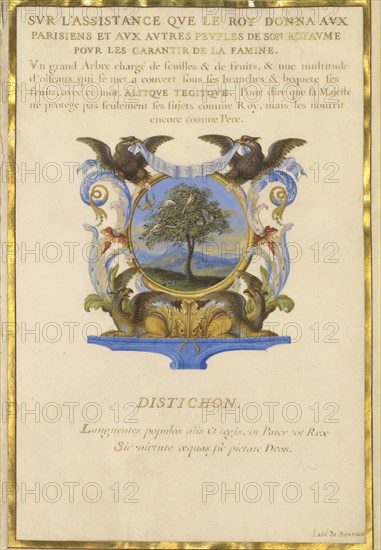 SVR L'ASSISTANCE QVE LE ROY DONNA AVX
PARISIENS ET AVX AVTRES PEVPLES DE SON ROYAVME
POVR LES GARANTIR DE LA FAMINE.
Vn grand Arbre chargé de feuilles & de fruits, & une multitude
d'oiseaux qui se met a couvert sous ses branches & bequete ses
fruits, avec ce mot. ALITQVE TEGITQVE. Pour dire que sa Majesté
ne protege pas seulement ses sujets comme Roy, mais les nourrit
encore comme Pere.
DISTICHON.
Languentes populos alis & tegis, ut Pater ut Rex
Sic virtute æquas sic pietate Deos.
PHOTO 12